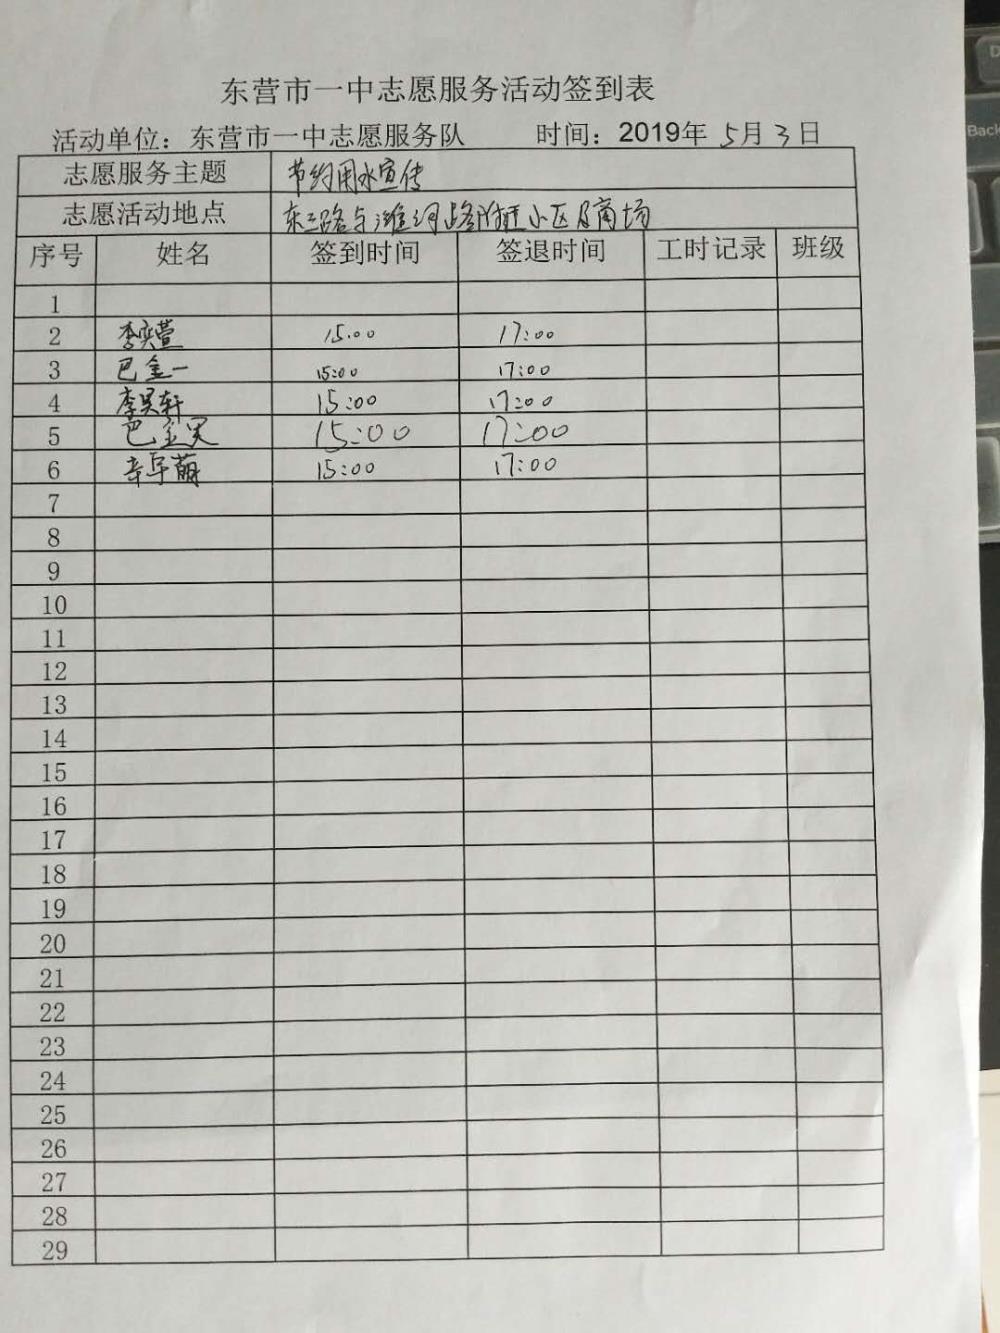 东营市一中志愿服务活动签到表
活动单位：东营市一中志愿服务队 时间：2019年 5月 3日
志愿服务主题 节约用水宣传
志愿活动地点 东三路与潍河路附近小区及商场
序号 姓名 签到时间 签退时间 工时记录 班级
1
2 李奕萱 15:00 17:00
3 巴金一 15:00 17:00
4 李昊轩 15:00 17:00
5 巴 15:00 17:00
6 萌 15:00 17:00
7
8
9
10
11
12
13
14
15
16
17
18
19
20
21
22
23
24
25
26
27
28
29
Back